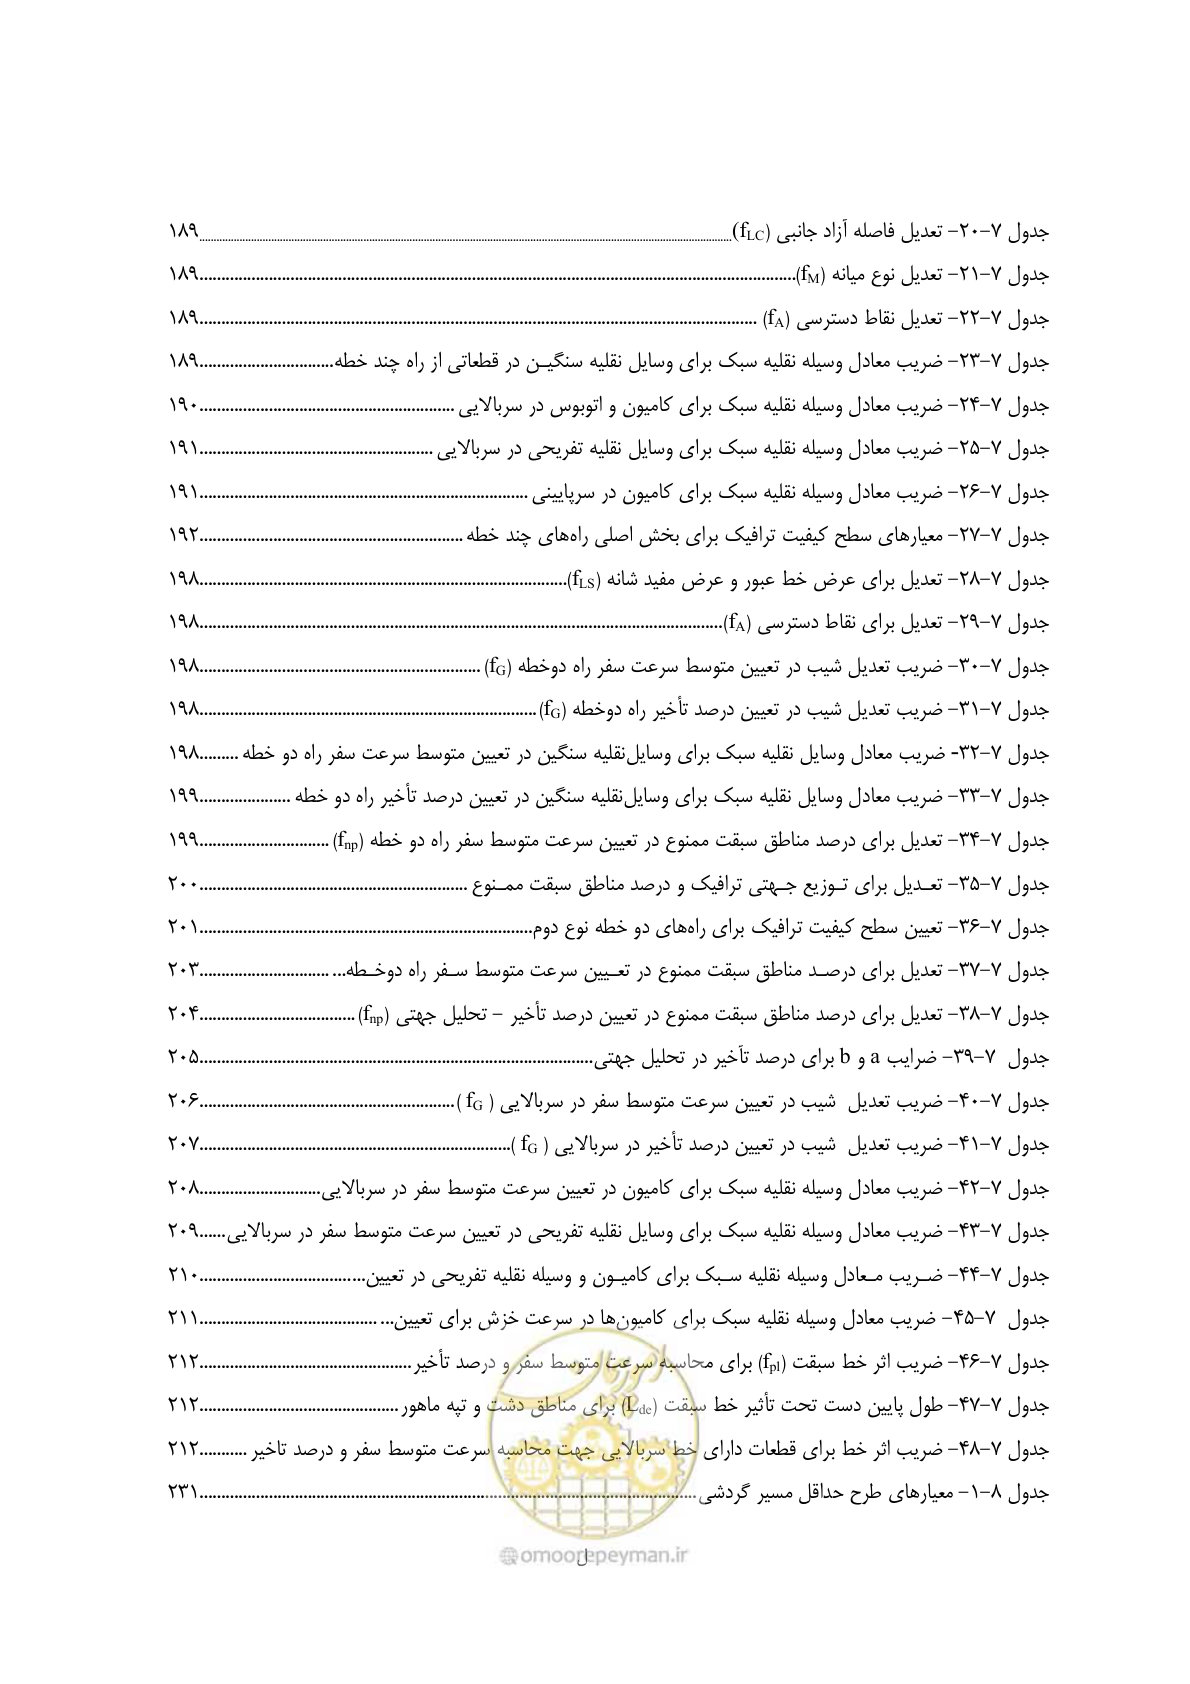 جدول ۷-۲۰- تعدیل فاصله آزاد جانبی (fLC)........................۱۸۹
جدول ۷-۲۱- تعدیل نوع میانه (fM)........................۱۸۹
جدول ۷-۲۲- تعدیل نقاط دسترسی (fA) ........................۱۸۹
جدول ۷-۲۳- ضریب معادل وسیله نقلیه سبک برای وسایل نقلیه سنگیـن در قطعاتی از راه چند خطه........................۱۸۹
جدول ۷-۲۴- ضریب معادل وسیله نقلیه سبک برای کامیون و اتوبوس در سربالایی ........................۱۹۰
جدول ۷-۲۵- ضریب معادل وسیله نقلیه سبک برای وسایل نقلیه تفریحی در سربالایی ........................۱۹۱
جدول ۷-۲۶- ضریب معادل وسیله نقلیه سبک برای کامیون در سرپایینی ........................۱۹۱
جدول ۷-۲۷- معیارهای سطح کیفیت ترافیک برای بخش اصلی راه‌های چند خطه ........................۱۹۲
جدول ۷-۲۸- تعدیل برای عرض خط عبور و عرض مفید شانه (fLS)........................۱۹۸
جدول ۷-۲۹- تعدیل برای نقاط دسترسی (fA)........................۱۹۸
جدول ۷-۳۰- ضریب تعدیل شیب در تعیین متوسط سرعت سفر راه دوخطه (fG) ........................۱۹۸
جدول ۷-۳۱- ضریب تعدیل شیب در تعیین درصد تأخیر راه دوخطه (fG)........................۱۹۸
جدول ۷-۳۲- ضریب معادل وسایل نقلیه سبک برای وسایل‌نقلیه سنگین در تعیین متوسط سرعت سفر راه دو خطه .........۱۹۸
جدول ۷-۳۳- ضریب معادل وسایل نقلیه سبک برای وسایل‌نقلیه سنگین در تعیین درصد تأخیر راه دو خطه .....................۱۹۹
جدول ۷-۳۴- تعدیل برای درصد مناطق سبقت ممنوع در تعیین سرعت متوسط سفر راه دو خطه (fnp) ........................۱۹۹
جدول ۷-۳۵- تعـدیل برای تـوزیع جـهتی ترافیک و درصد مناطق سبقت ممـنوع ........................۲۰۰
جدول ۷-۳۶- تعیین سطح کیفیت ترافیک برای راه‌های دو خطه نوع دوم........................۲۰۱
جدول ۷-۳۷- تعدیل برای درصـد مناطق سبقت ممنوع در تعـیین سرعت متوسط سـفر راه دوخـطه... ........................۲۰۳
جدول ۷-۳۸- تعدیل برای درصد مناطق سبقت ممنوع در تعیین درصد تأخیر – تحلیل جهتی (fnp)........................۲۰۴
جدول ۷-۳۹- ضرایب a و b برای درصد تأخیر در تحلیل جهتی........................۲۰۵
جدول ۷-۴۰- ضریب تعدیل شیب در تعیین سرعت متوسط سفر در سربالایی ( fG )........................۲۰۶
جدول ۷-۴۱- ضریب تعدیل شیب در تعیین درصد تأخیر در سربالایی ( fG )........................۲۰۷
جدول ۷-۴۲- ضریب معادل وسیله نقلیه سبک برای کامیون در تعیین سرعت متوسط سفر در سربالایی........................۲۰۸
جدول ۷-۴۳- ضریب معادل وسیله نقلیه سبک برای وسایل نقلیه تفریحی در تعیین سرعت متوسط سفر در سربالایی......۲۰۹
جدول ۷-۴۴- ضـریب مـعادل وسیله نقلیه سـبک برای کامیـون و وسیله نقلیه تفریحی در تعیین........................۲۱۰
جدول ۷-۴۵- ضریب معادل وسیله نقلیه سبک برای کامیون‌ها در سرعت خزش برای تعیین... ........................۲۱۱
جدول ۷-۴۶- ضریب اثر خط سبقت (fpl) برای محاسبه سرعت متوسط سفر و درصد تأخیر........................۲۱۲
جدول ۷-۴۷- طول پایین دست تحت تأثیر خط سبقت (Lde) برای مناطق دشت و تپه ماهور........................۲۱۲
جدول ۷-۴۸- ضریب اثر خط برای قطعات دارای خط سربالایی جهت محاسبه سرعت متوسط سفر و درصد تاخیر ...........۲۱۲
جدول ۸-۱- معیارهای طرح حداقل مسیر گردشی........................۲۳۱
امور پیمان
ل
@omoorepeyman.ir